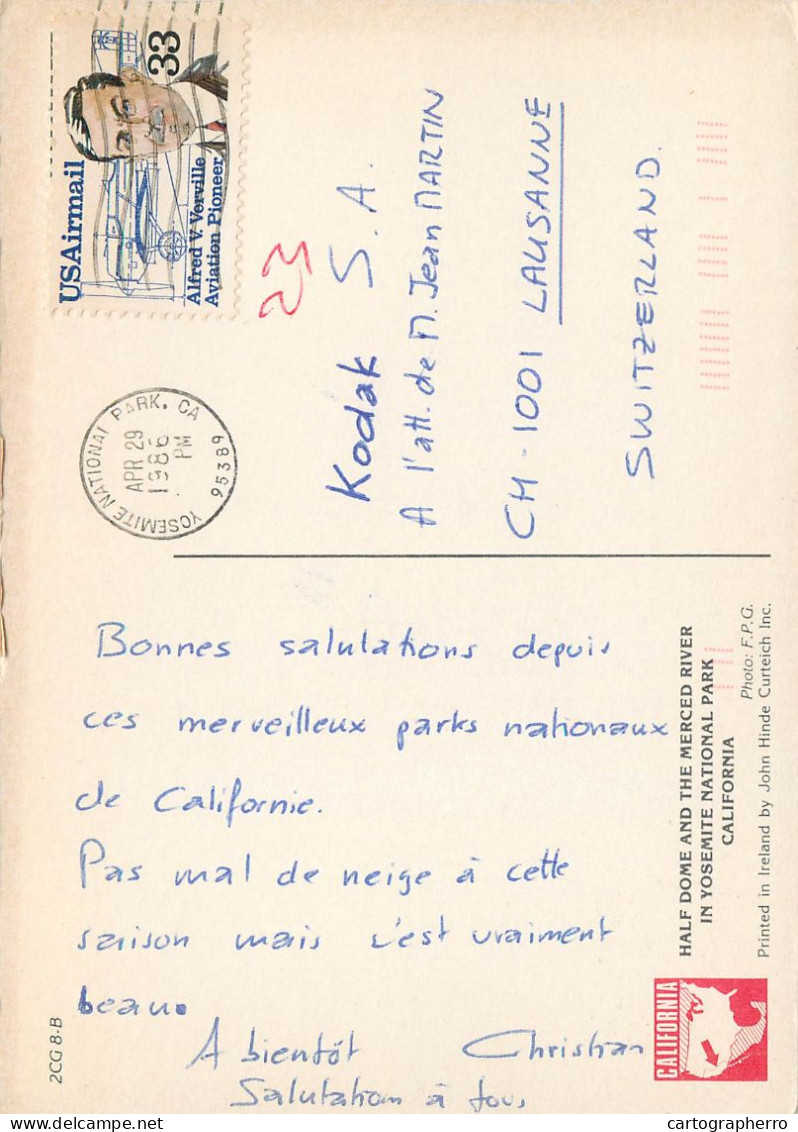 USAirmail
33
Alfred V. Verville
Aviation Pioneer
YOSEMITE NATIONAL PARK, CA
APR 29
1986
PM
95389
23
Kodak S.A.
A l'att. de M. Jean MARTIN
CH-1001 LAUSANNE
SWITZERLAND.
Bonnes salutations depuis
ces merveilleux parks nationaux
de Californie.
Pas mal de neige à cette
saison mais c'est vraiment
beau.
A bientôt Christian
Salutation à tous
HALF DOME AND THE MERCED RIVER
IN YOSEMITE NATIONAL PARK
CALIFORNIA
Photo: F.P.G.
Printed in Ireland by John Hinde Curteich Inc.
CALIFORNIA
2CG 8-B
cartographerro